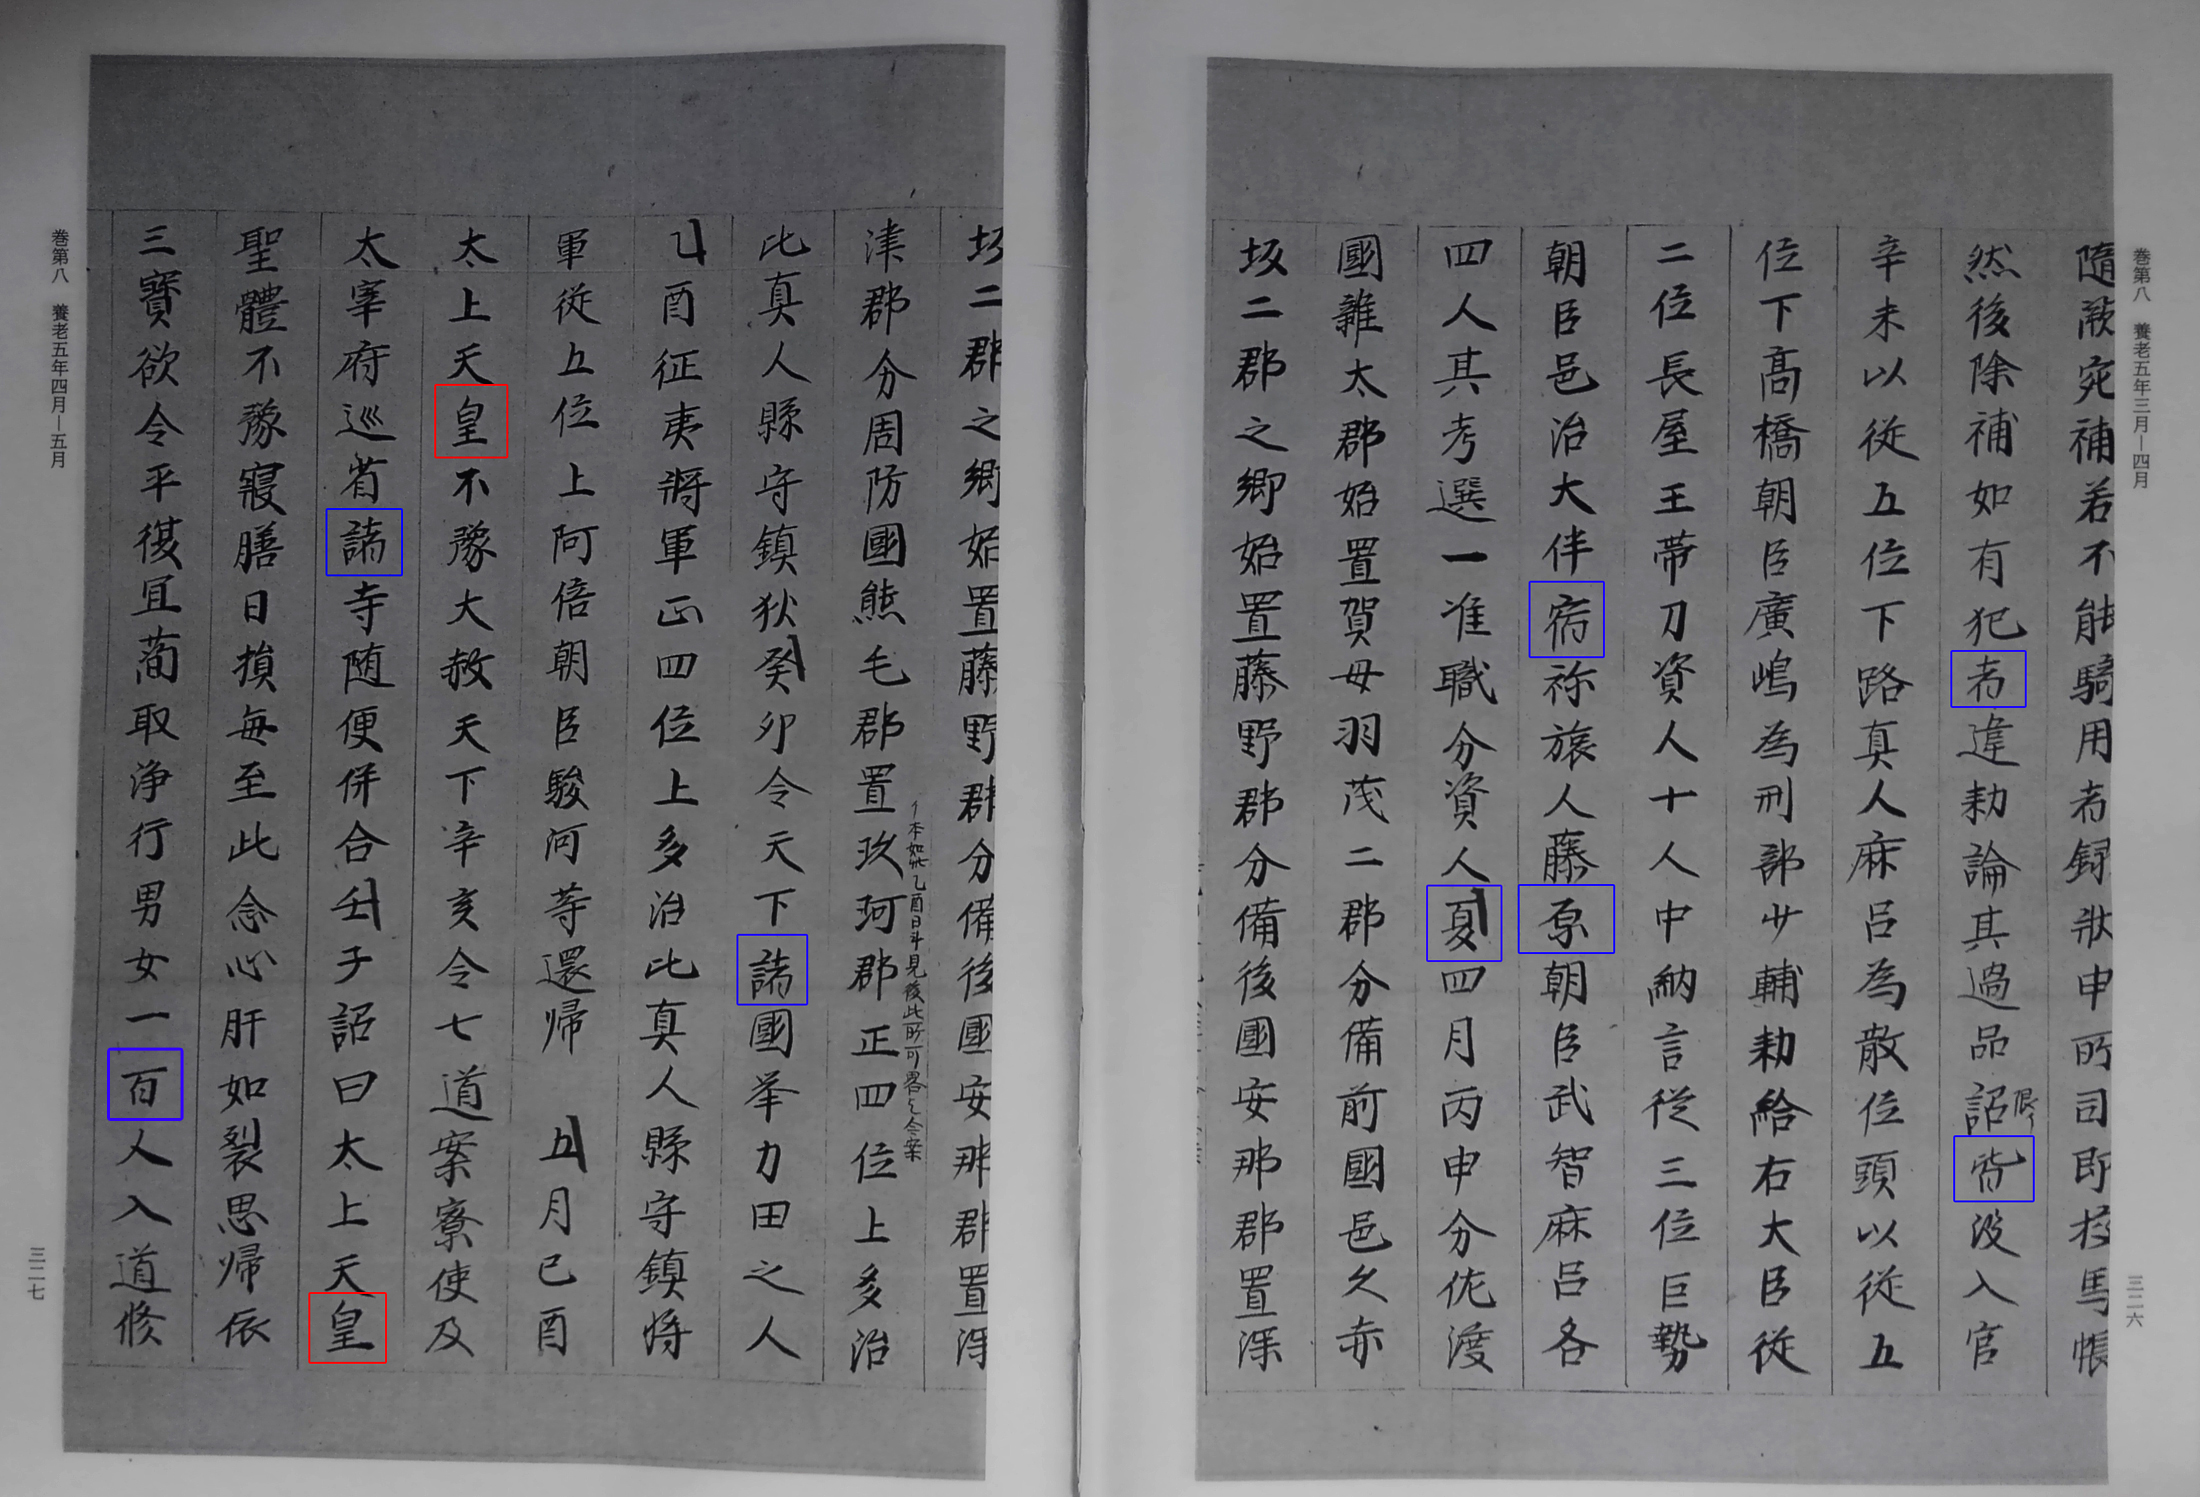 巻第八　養老五年三月―四月
三二六
隨厥宛補若不能騎用者録狀申所司即校馬帳
然後除補如有犯者違勅論其過品詔皆没入官
辛未以従五位下路真人麻呂為散位頭以従五
位下髙橋朝臣廣嶋為刑部少輔勅給右大臣従
二位長屋王帯刀資人十人中納言従三位巨勢
朝臣邑治大伴宿祢旅人藤原朝臣武智麻呂各
四人其考選一准職分資人夏四月丙申分佐渡
國雜太郡始置賀母羽茂二郡分備前國邑久赤
坂二郡之郷始置藤野郡分備後國安那郡置深
坂二郡之郷始置藤野郡分備後國安那郡置深
イ本如此乙酉日斗見後此所可畧之今案
津郡分周防國熊毛郡置玖珂郡正四位上多治
比真人縣守鎮狄癸卯令天下諸國举力田之人
乙酉征夷將軍正四位上多治比真人縣守鎮将
軍従五位上阿倍朝臣駿河等還帰　五月己酉
太上天皇不豫大赦天下辛亥令七道案察使及
太宰府巡省諸寺随便併合壬子詔曰太上天皇
聖體不豫寝膳日損毎至此念心肝如裂思帰依
三寳欲令平復宜簡取浄行男女一百人入道修
巻第八　養老五年四月―五月
三二七